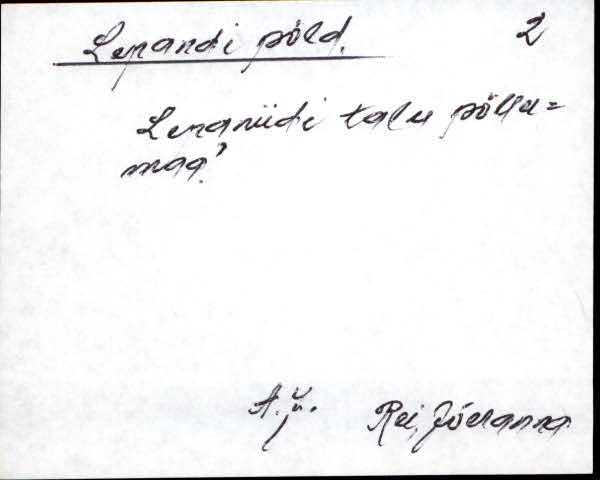 Lepandi põld. 2
Lepaniidi talu põllu=
maa.
A. Ü.
Rei, Jõeranna